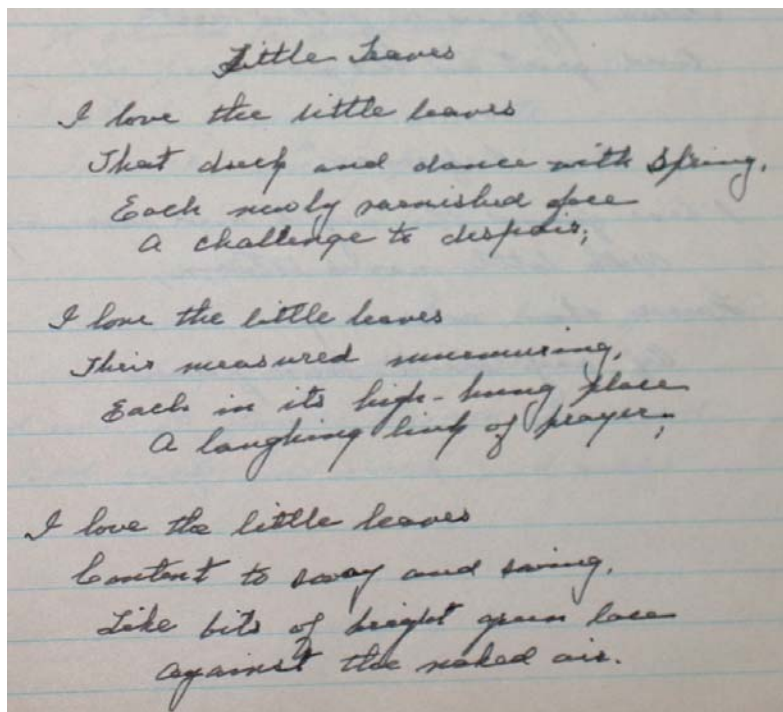 Little Leaves
I love the little leaves
That duck and dance with Spring,
Each newly varnished face
A challenge to despair;
I love the little leaves
Their measured murmuring,
Each in its high-hung place
A laughing link of prayer;
I love the little leaves
Content to sway and swing,
Like bits of bright green lace
Against the naked air.